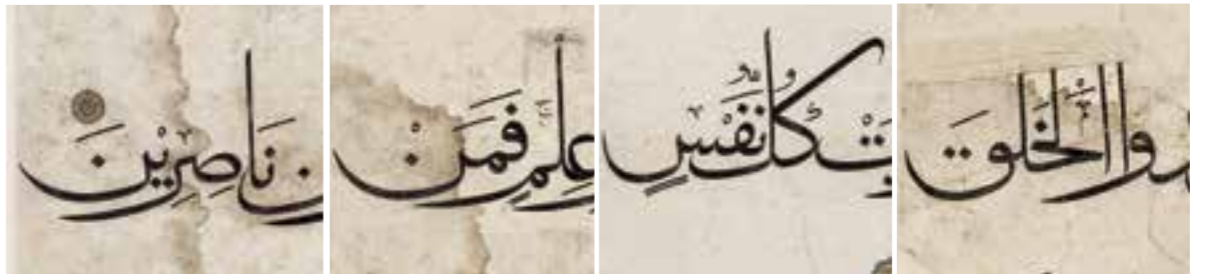 الْخَلقَ
كُلُّ نَفْسٍ
عِلْمٍ فَمَنْ
نَاصِرِيْنَ